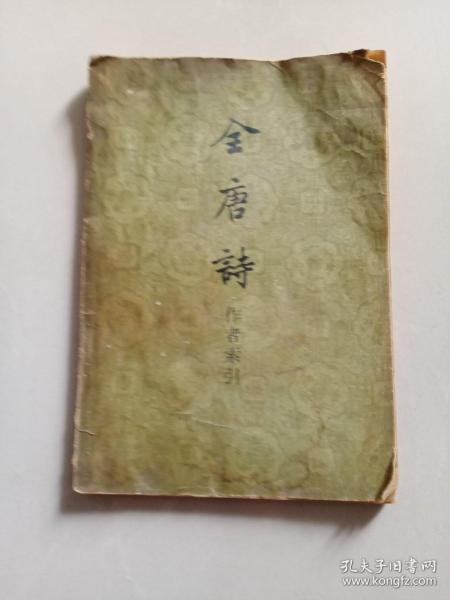 全唐詩
作者索引
孔夫子旧书网
www.kongfz.com